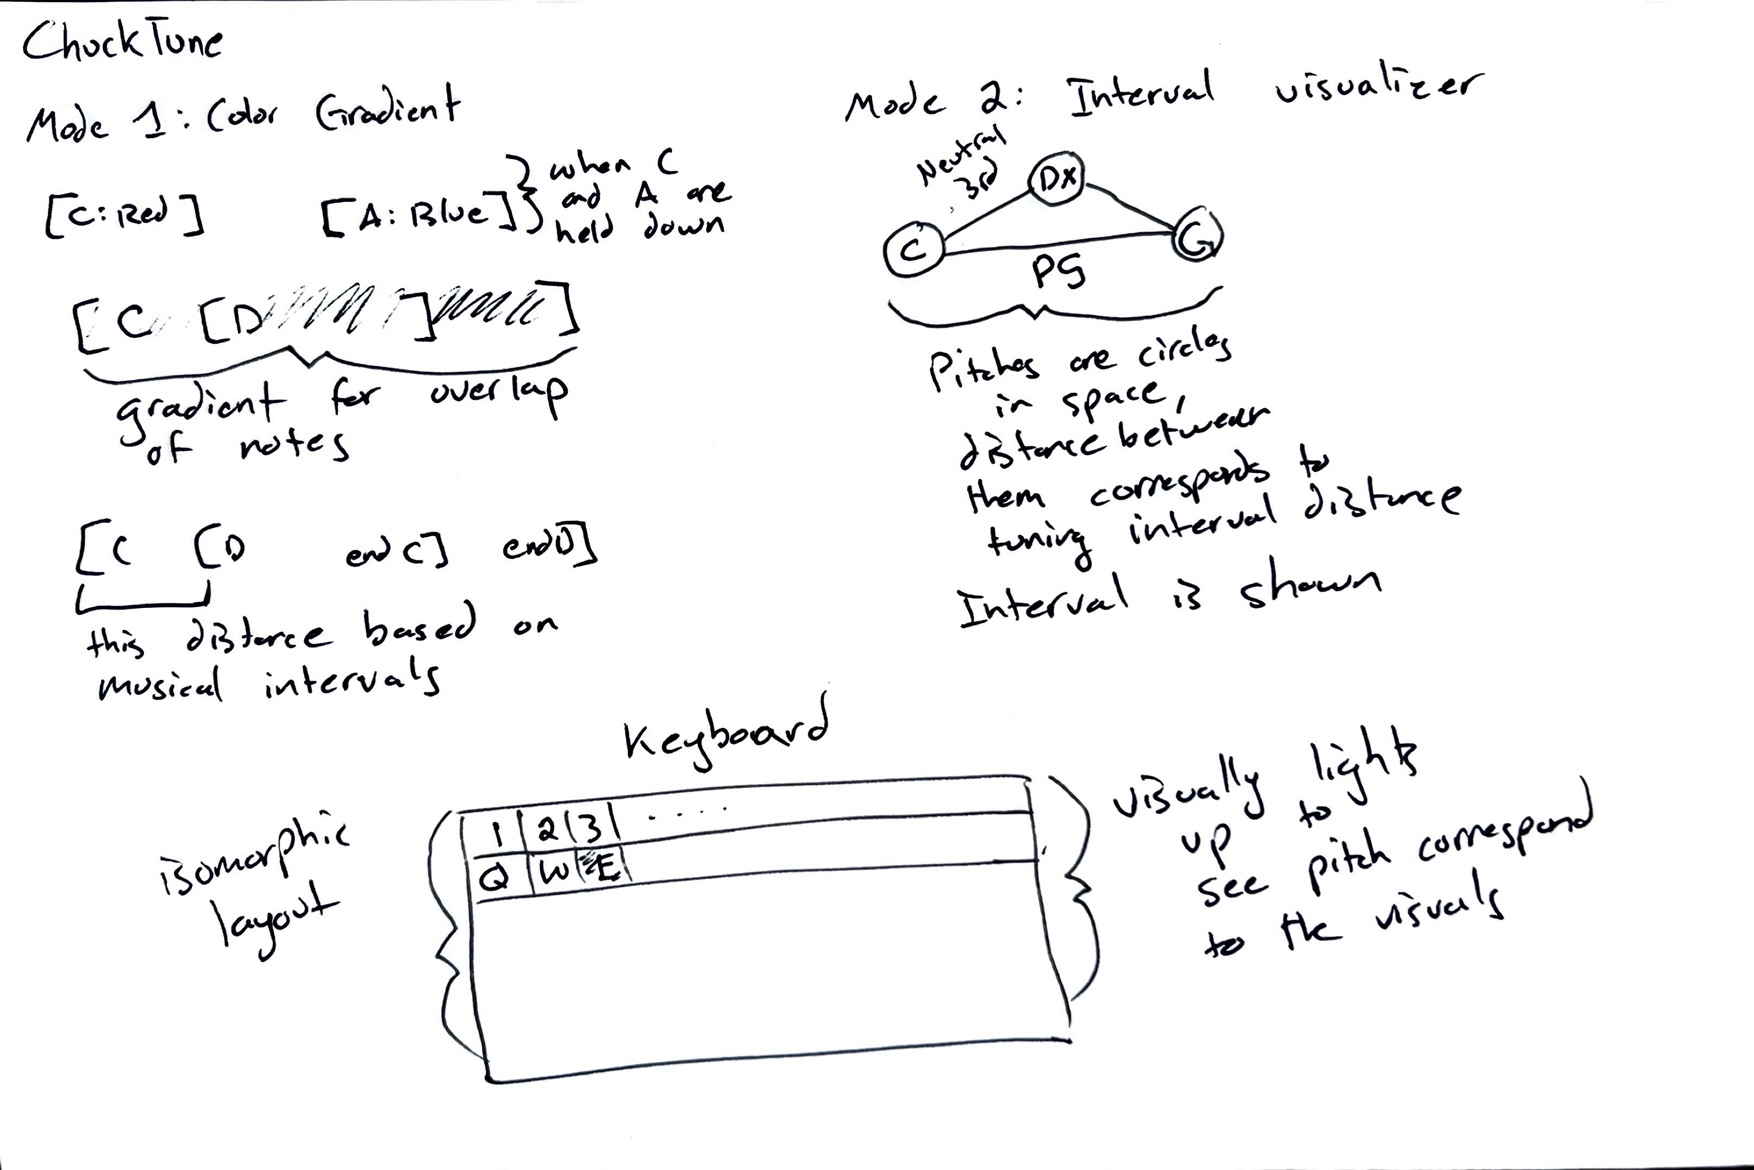 ChuckTune
Mode 1: Color Gradient
[C: Red] [A: Blue]
when C
and A are
held down
[C [D ] ]
gradient for overlap
of notes
[C [D end C] end D]
this distance based on
musical intervals
Mode 2: Interval visualizer
Neutral
3rd
DX
C
G
P5
Pitches are circles
in space,
distance between
them corresponds to
tuning interval distance
Interval is shown
Keyboard
isomorphic
layout
1 2 3 . . . . .
Q W E
visually lights
up to
see pitch correspond
to the visuals